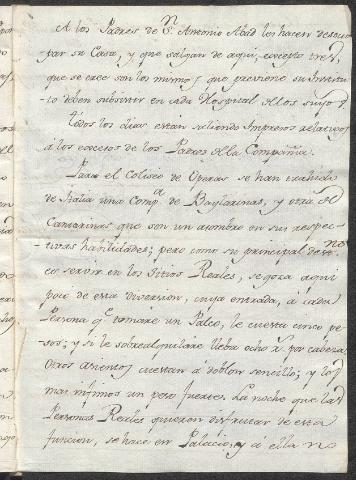 A los Padres de Sn. Antonio Abad los hacen desocu
par su Casa, y que salgan de aqui, excepto tres,
que se cree son los mismos, que previene su Institu
to deben subsistir en cada Hospital de los suyos.
Todos los dias estan saliendo Impresos relativos
á los excesos de los Padres de la Compañia.
Para el Coliseo de Operas se han trahido
de Italia una Compa. de Baylarinas, y otra de
Cantarinas que son un asombro en sus respec-
tivas habilidades; pero como su principal
servir en los Sitios Reales, se goza aqui
poco de esta diversion, cuya entrada, á cada
Persona qe. tomare un Palco, le cuesta cinco pe-
sos; y si le sobrealquilare lleba ocho rs. por cabeza
otros asientos cuestan á doblon sencillo; y los
mas infimos un peso fuerte. La noche que las
Personas Reales quieren disfrutar de esta
funcion, se hace en Palacio, y á ella no